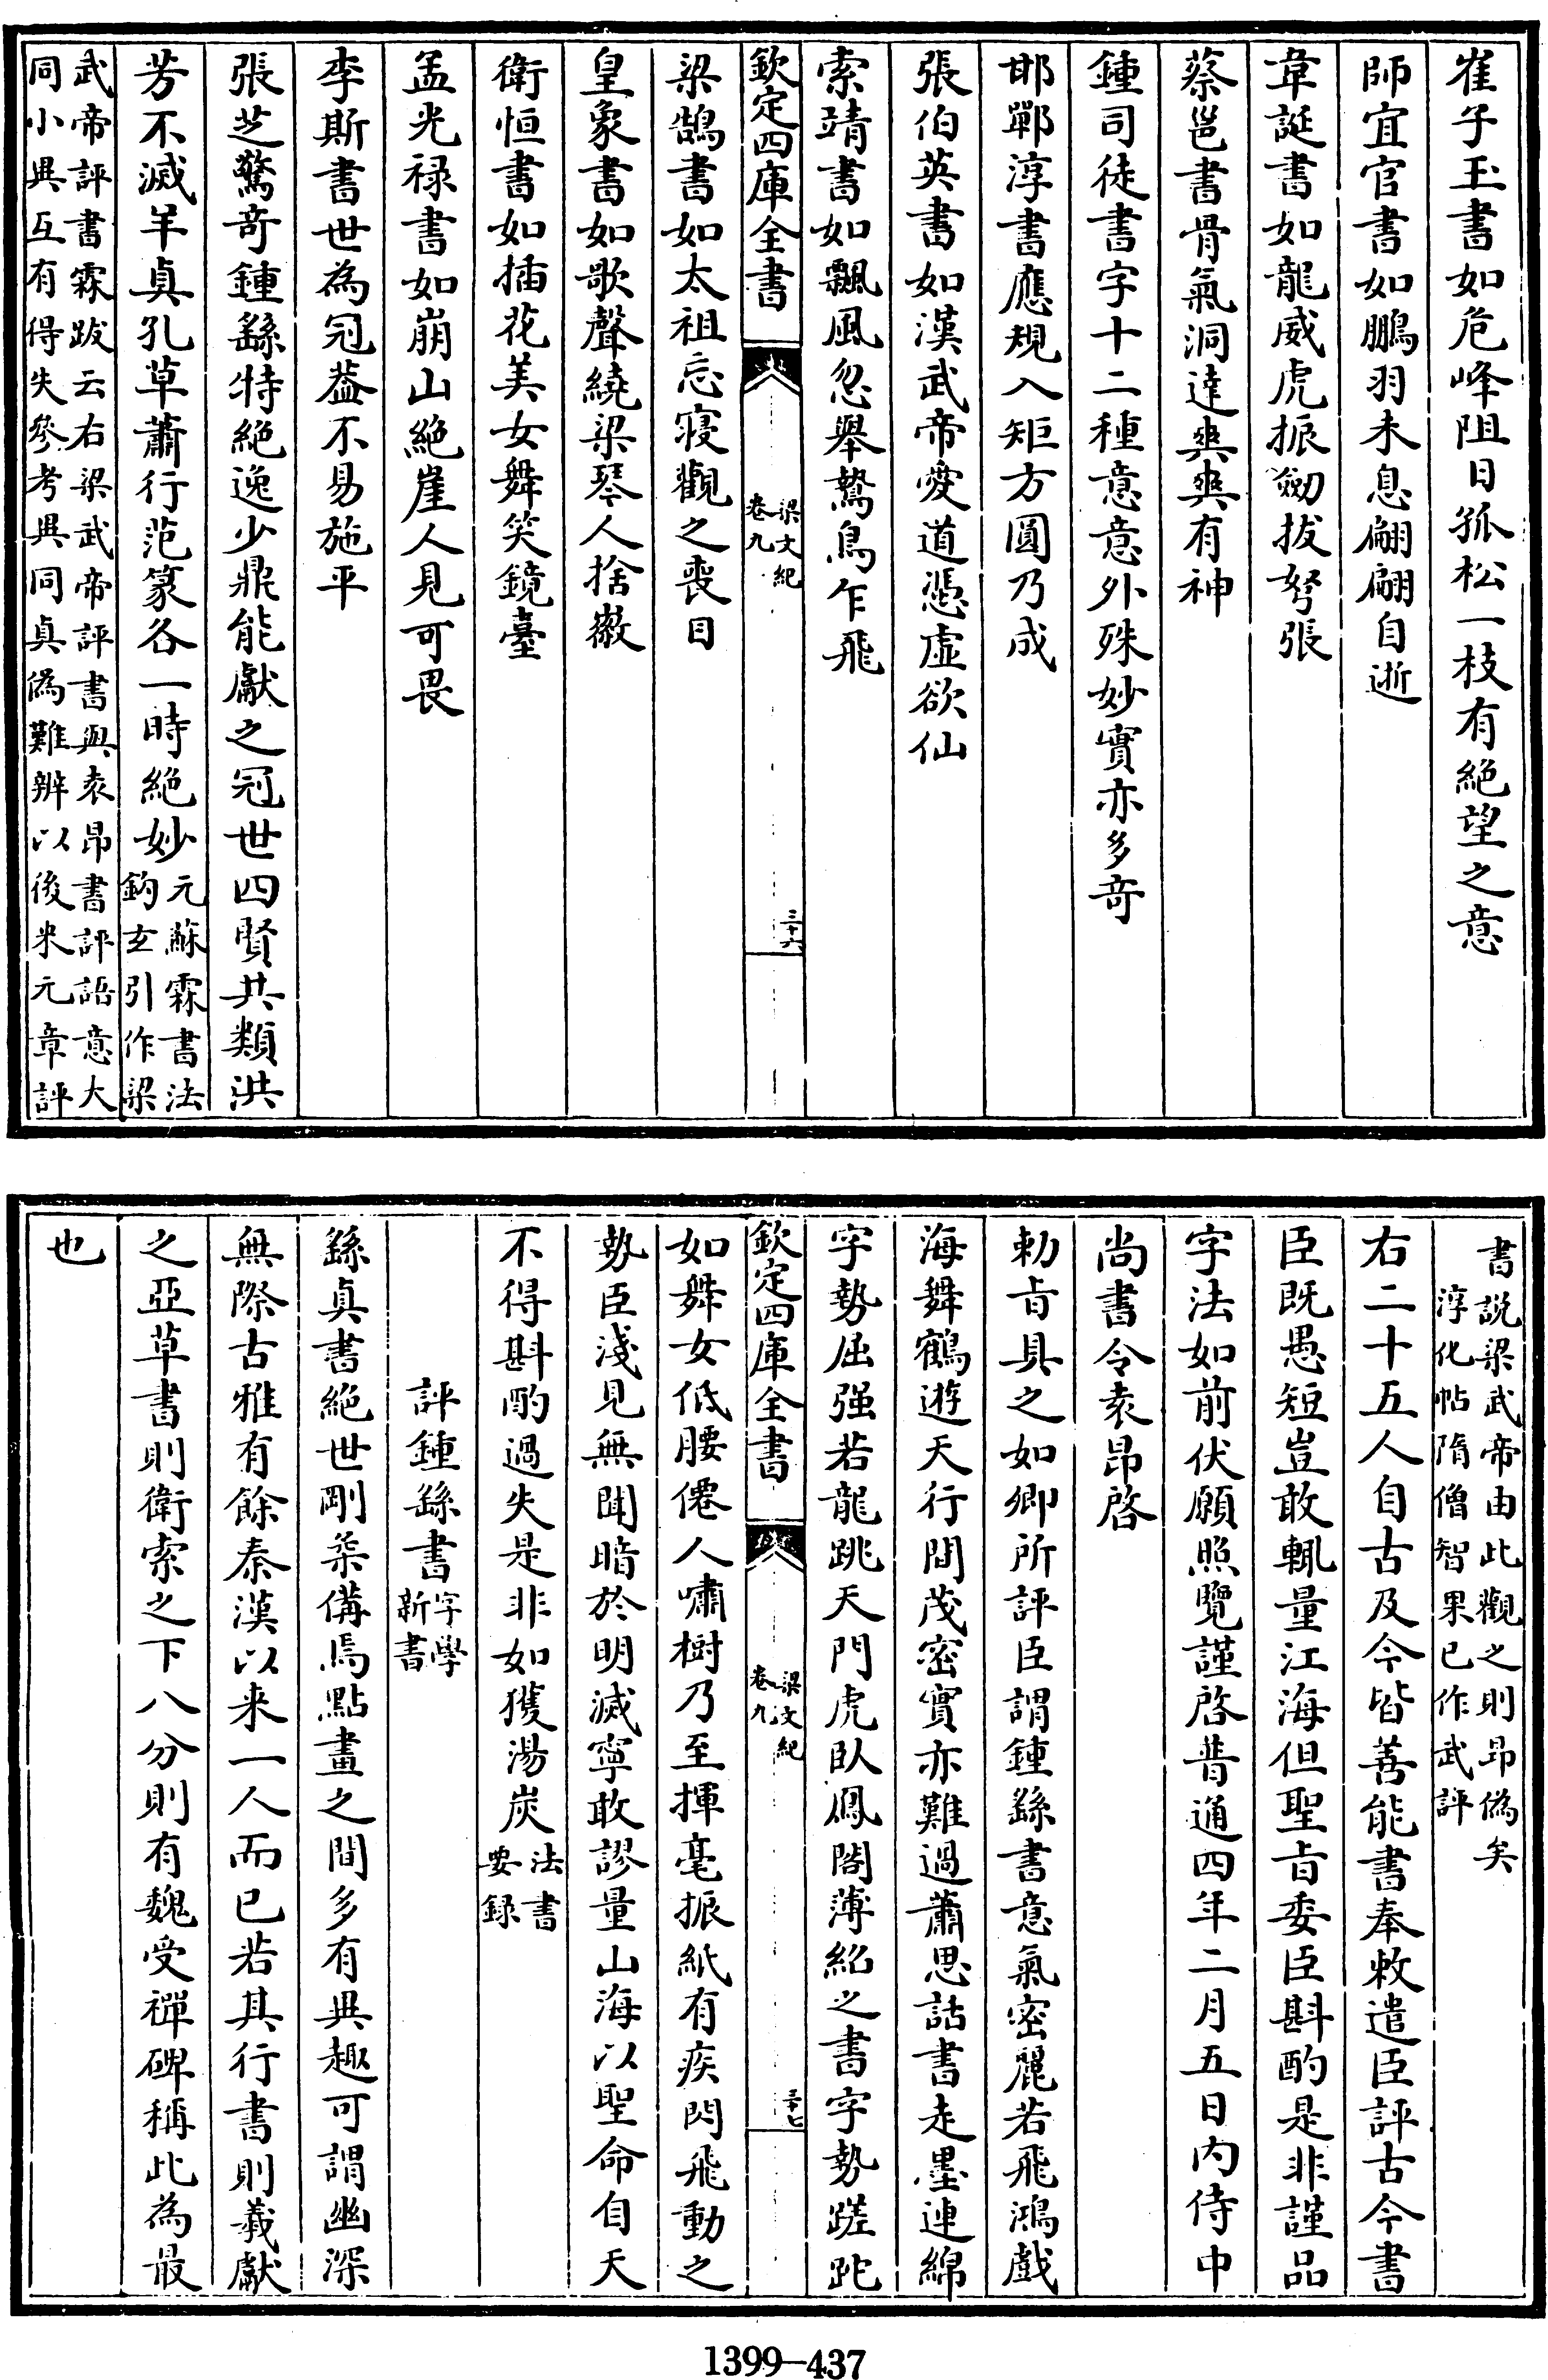 崔子玉書如危峰阻日孤松一枝有絶望之意
師宜官書如鵬羽未息翩翩自逝
韋誕書如龍威虎振劒拔弩張
蔡邕書骨氣洞達爽爽有神
鍾司徒書字十二種意意外殊妙實亦多竒
邯鄲淳書應規入矩方圓乃成
張伯英書如漢武帝愛道憑虚欲仙
索靖書如飄風忽舉鷙鳥乍飛
欽定四庫全書
梁文紀
卷九
三十六
梁鵠書如太祖忘寝觀之喪目
皇象書如歌聲繞梁琴人捨徽
衛恒書如插花美女舞笑鏡臺
孟光禄書如崩山絶崖人見可畏
李斯書世為冠葢不易施平
張芝驚竒鍾繇特絶逸少鼎能獻之冠世四賢共類洪
芳不滅羊真孔草蕭行范篆各一時絶妙元蘇霖書法
鈎玄引作梁
武帝評書霖跋云右梁武帝評書與袁昂書評語意大
同小異互有得失叅考異同真偽難辨以後米元章評
書説梁武帝由此觀之則昂偽矣
淳化帖隋僧智果已作武評
右二十五人自古及今皆善能書奉敕遣臣評古今書
臣既愚短豈敢輒量江海但聖㫖委臣斟酌是非謹品
字法如前伏願照覽謹啓普通四年二月五日内侍中
尚書令袁昂啓
勅㫖具之如卿所評臣謂鍾繇書意氣密麗若飛鴻戲
海舞鶴遊天行間茂密實亦難過蕭思話書走墨連綿
字勢屈强若龍跳天門虎臥鳳閣薄紹之書字勢蹉跎
欽定四庫全書
梁文紀
卷九
三十七
如舞女低腰僊人嘯樹乃至揮毫振紙有疾閃飛動之
勢臣淺見無聞暗於明滅寧敢謬量山海以聖命自天
不得斟酌過失是非如獲湯炭法書
要録
評鍾繇書字學
新書
繇真書絶世剛柔備焉點畫之間多有異趣可謂幽深
無際古雅有餘秦漢以来一人而已若其行書則羲獻
之亞草書則衛索之下八分則有魏受禪碑稱此為最
也
1399—437